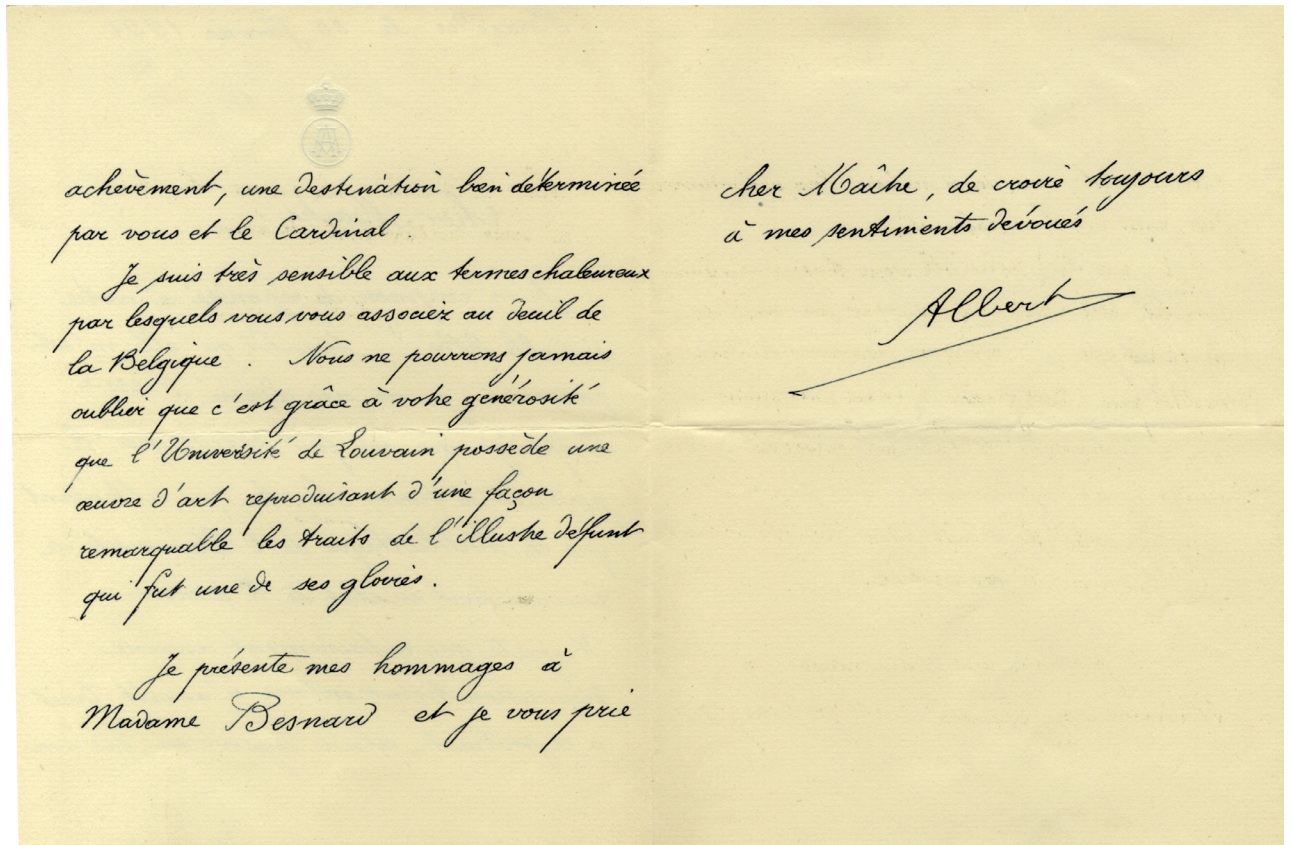 achèvement, une destination bien déterminée
par vous et le Cardinal.
Je suis très sensible aux termes chaleureux
par lesquels vous vous associez au deuil de
la Belgique. Nous ne pourrons jamais
oublier que c'est grâce à votre générosité
que l'Université de Louvain possède une
œuvre d'art reproduisant d'une façon
remarquable les traits de l'illustre défunt
qui fut une de ses gloires.
Je présente mes hommages à
Madame Besnard et je vous prie
cher Maître, de croire toujours
à mes sentiments dévoués
Albert